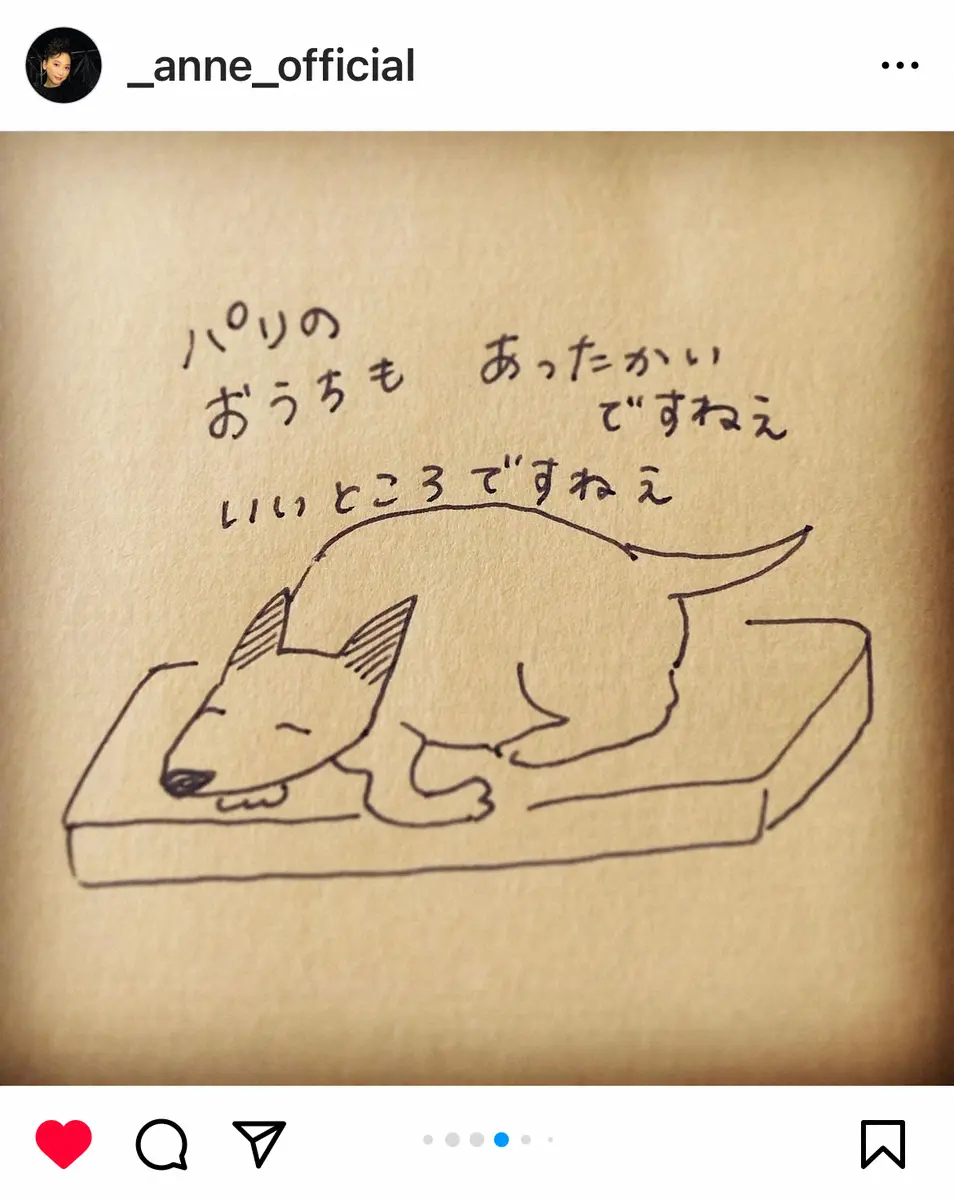 _anne_official
パリの
おうちも あったかい
ですねえ
いいところですねえ